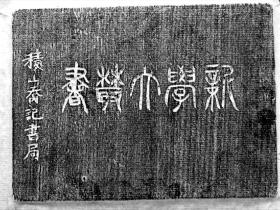 新學大叢書
積山喬記書局